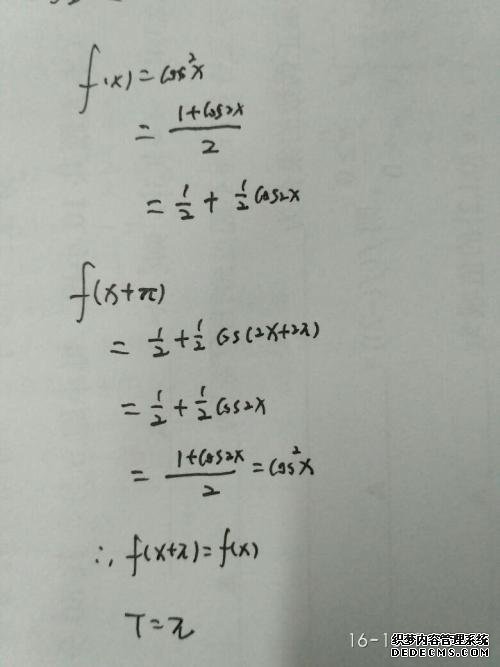 f(x) = cos²x
= (1+cos2x)/2
= 1/2 + 1/2 cos2x
f(x+π)
= 1/2 + 1/2 cos(2x+2π)
= 1/2 + 1/2 cos2x
= (1+cos2x)/2 = cos²x
∴ f(x+π) = f(x)
T = π
16-1
织梦内容管理系统
DEDECMS.COM